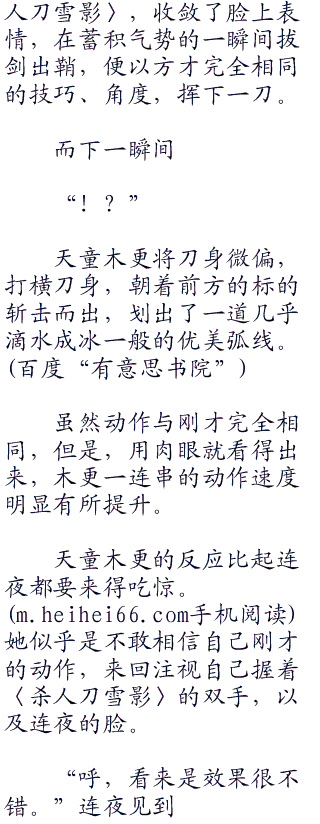 人刀雪影〉，收敛了脸上表
情，在蓄积气势的一瞬间拔
剑出鞘，便以方才完全相同
的技巧、角度，挥下一刀。
而下一瞬间
“！？”
天童木更将刀身微偏，
打横刀身，朝着前方的标的
斩击而出，划出了一道几乎
滴水成冰一般的优美弧线。
(百度“有意思书院”)
虽然动作与刚才完全相
同，但是，用肉眼就看得出
来，木更一连串的动作速度
明显有所提升。
天童木更的反应比起连
夜都要来得吃惊。
(m.heihei66.com手机阅读)
她似乎是不敢相信自己刚才
的动作，来回注视自己握着
〈杀人刀雪影〉的双手，以
及连夜的脸。
“呼，看来是效果很不
错。”连夜见到